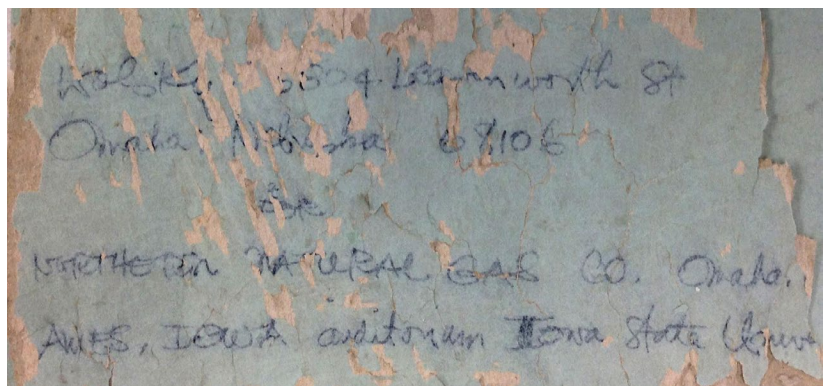 Wolsky. 5504 Leavenworth St
Omaha. Nebraska 68106
for
NORTHERN NATURAL GAS CO. Omaha.
AMES, IOWA auditorium Iowa State Univ